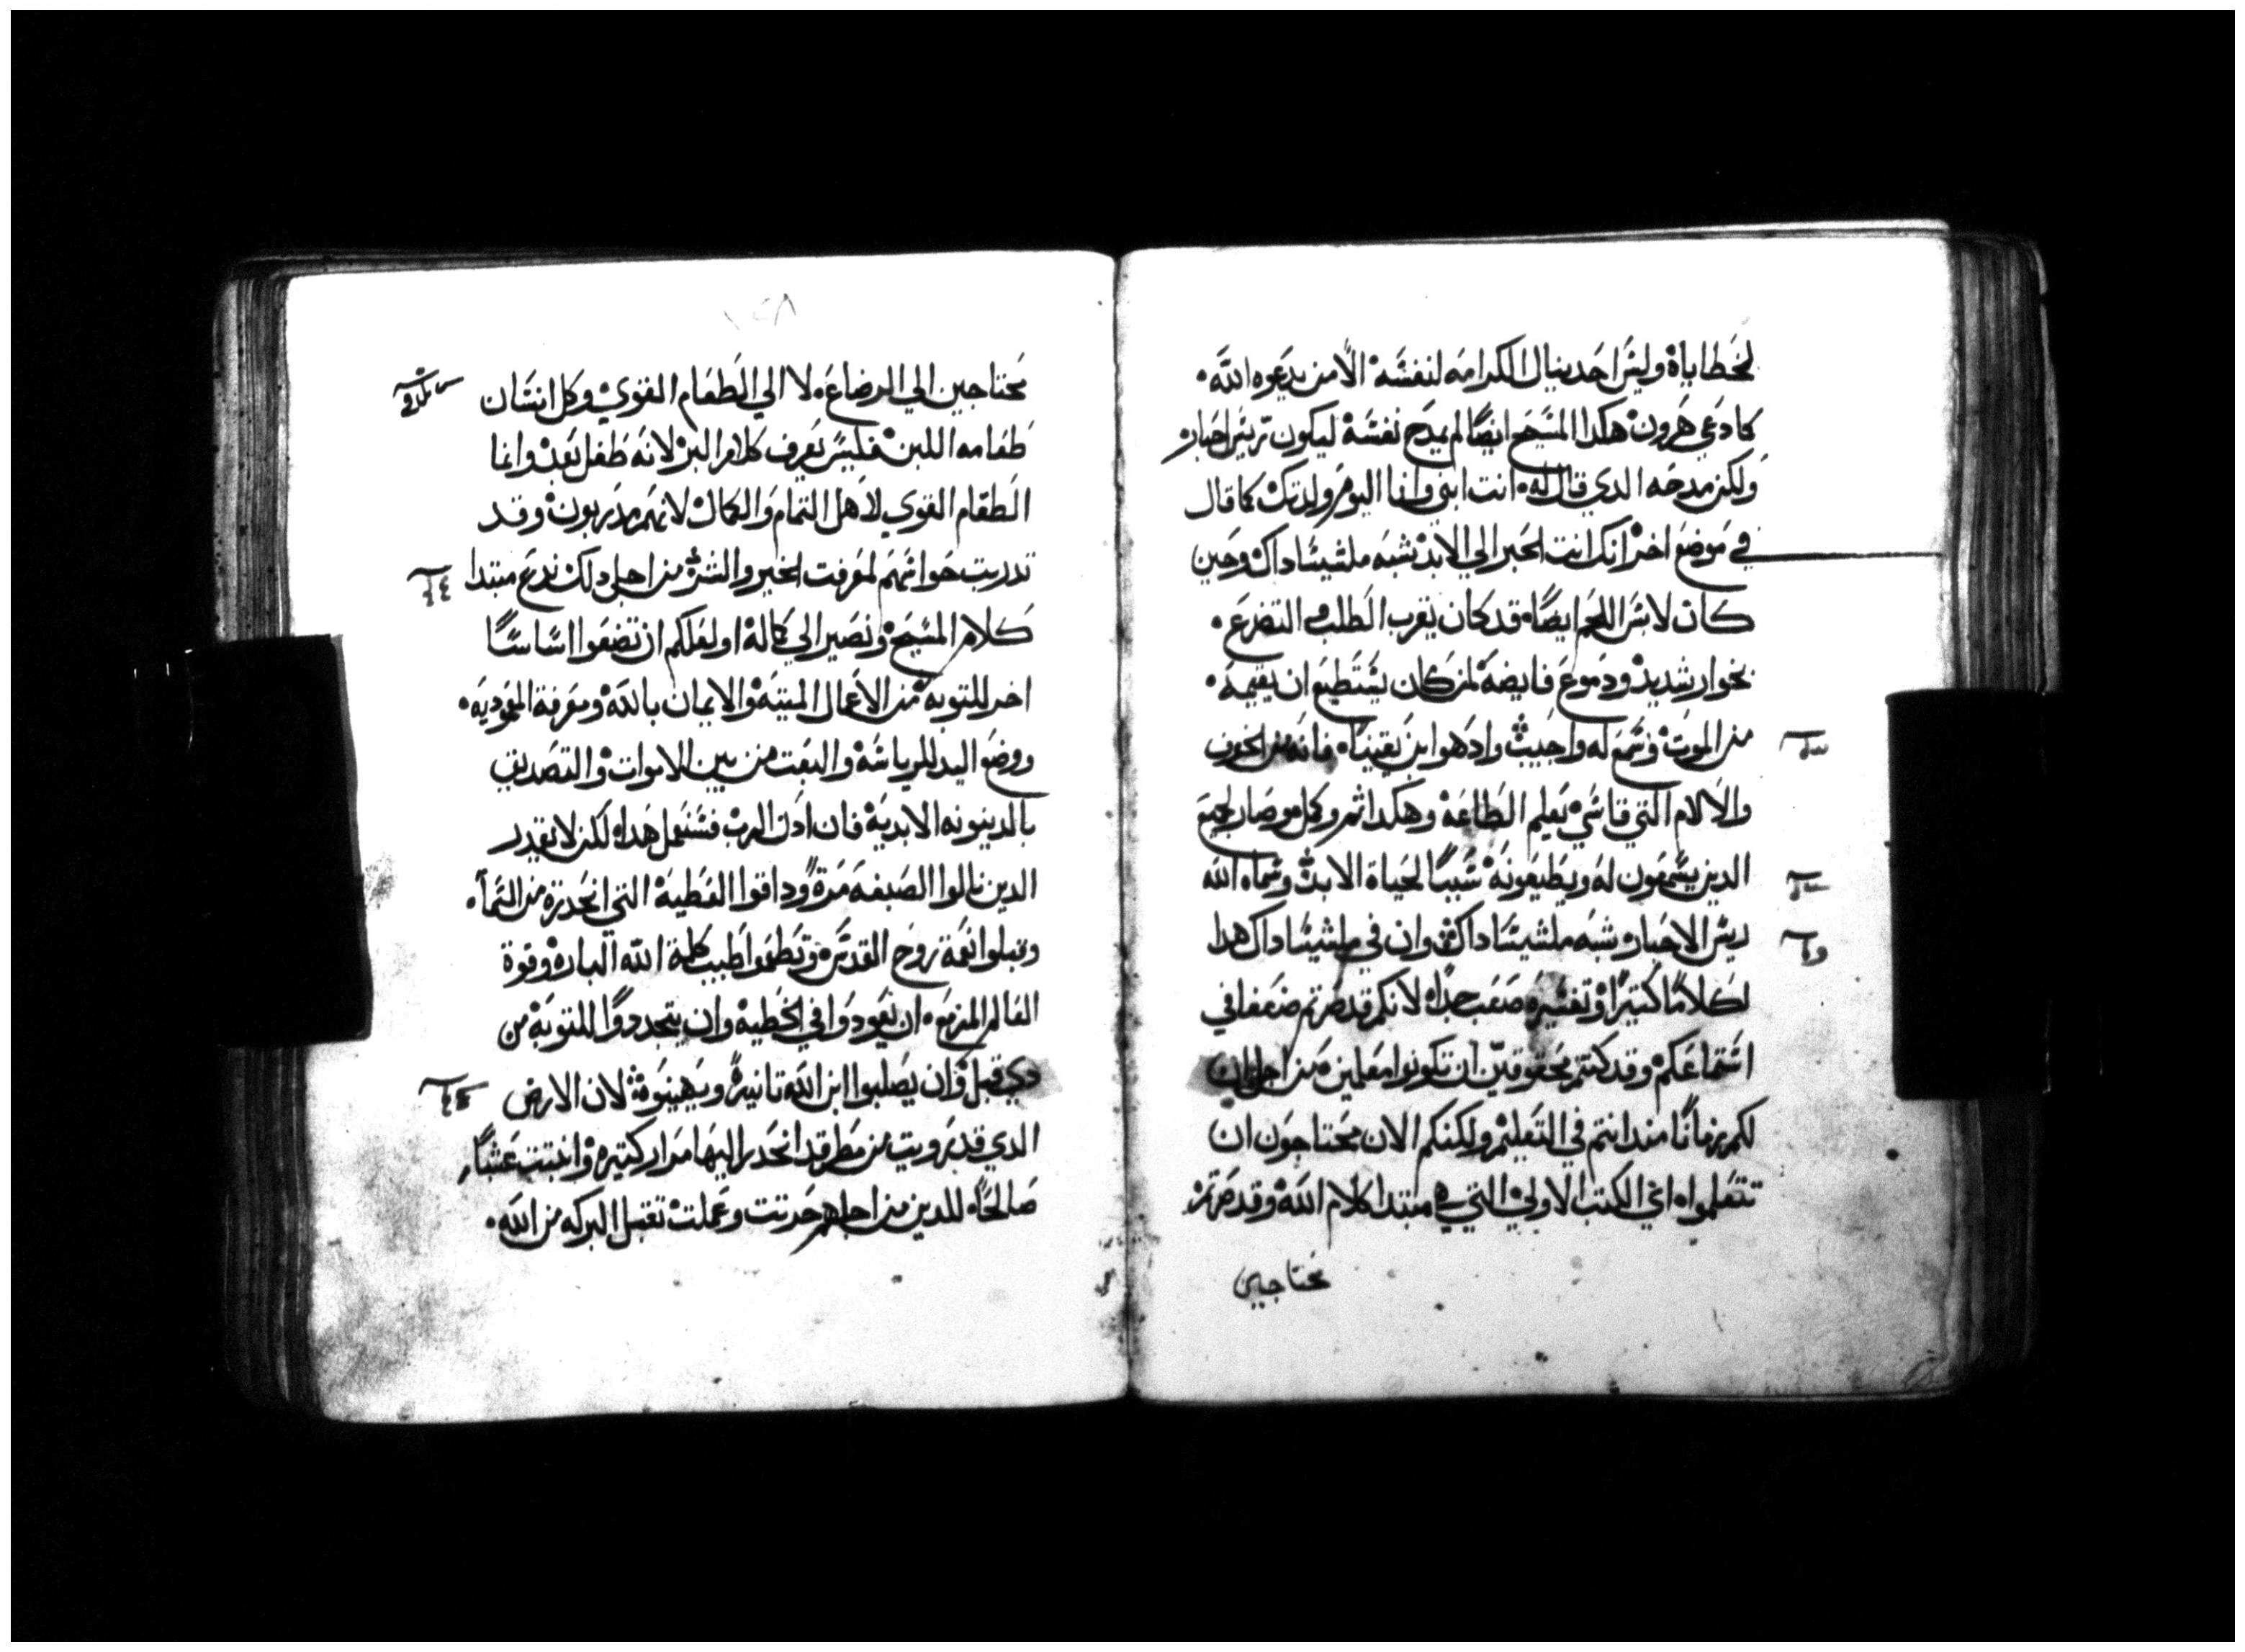 لخطاياه وليس احد ينال الكرامه لنفسه الا من يدعوه الله
كما دعي هرون هكدا المسيح ايضا لم يمدح نفسه ليكون ريس احبار
ولكن مدحه الدي قال له انت ابني وانا اليوم ولدتك كما قال
في موضع اخر انك انت الحبر الي الابد شبه ملشيساداك وحين
كان لابس اللحم ايضا قد كان يقرب الطلب و التضرع
بخوار شديد ودموع فايضه لمن كان يستطيع ان يقيمه
من الموت وسمع له واجيب واد هو ابن يقينا فانه من الخوف
والالام التي قاسي تعلم الطاعه وهكدا تم وكمل وصار لجميع
الدين يسمعون له ويطيعونه سببا لحياة الابد وسماه الله
ريس الاحبار شبه ملشيساداك وان في ملشيساداك هدا
لكلاما كتيرا وتفسيره صعب جدا لانكم قد صرتم ضعفا في
استماعكم وقد كنتم محقوقين ان تكونوا معلمين من اجل ان
لكم زمانا مند انتم في التعليم ولكنكم الان محتاجون ان
تتعلموا اعني الكتب الاولي التي هي مبتدا كلام الله وقد صرتم
محتاجين
١٥٨
محتاجين الي الرضاعه لا الي الطعام القوي وكل انسان
طعامه اللبن فليس يعرف كلام البر لانه طفل بعد وانما
الطعام القوي لاهل التمام والكمال لانهم مدربون وقد
تدربت حواسهم لمعرفت الخير والشر من اجل دلك ندع مبتدا
كلام المسيح ونصير الي كماله او لعلكم ان تضعوا اساسا
اخر للتوبه من الاعمال الميته والايمان بالله ومعرفة المعموديه
ووضع اليد للرياسه والبعت من بين الاموات والتصديق
بالدينونه الابديه فان ادن الرب فسنعمل هدا لكن لا يقدر
الدين نالوا الصبغه مرة وداقوا العطيه التي انحدرة من السما
وقبلوا نعمة روح القدس وتطعموا طيب كلمة الله الباره وقوة
العالم المزمع ان يعودوا في الخطيه وان يتجددوا للتوبه من
دي قبل وان يصلبوا ابن الله تانية ويهينوه لان الارض
الدي قد رويت من مطر قد انحدر اليها مرار كتيره وانبتت عشبا
صالحا للدين من اجلهم حرتت وعملت تقبل البركه من الله